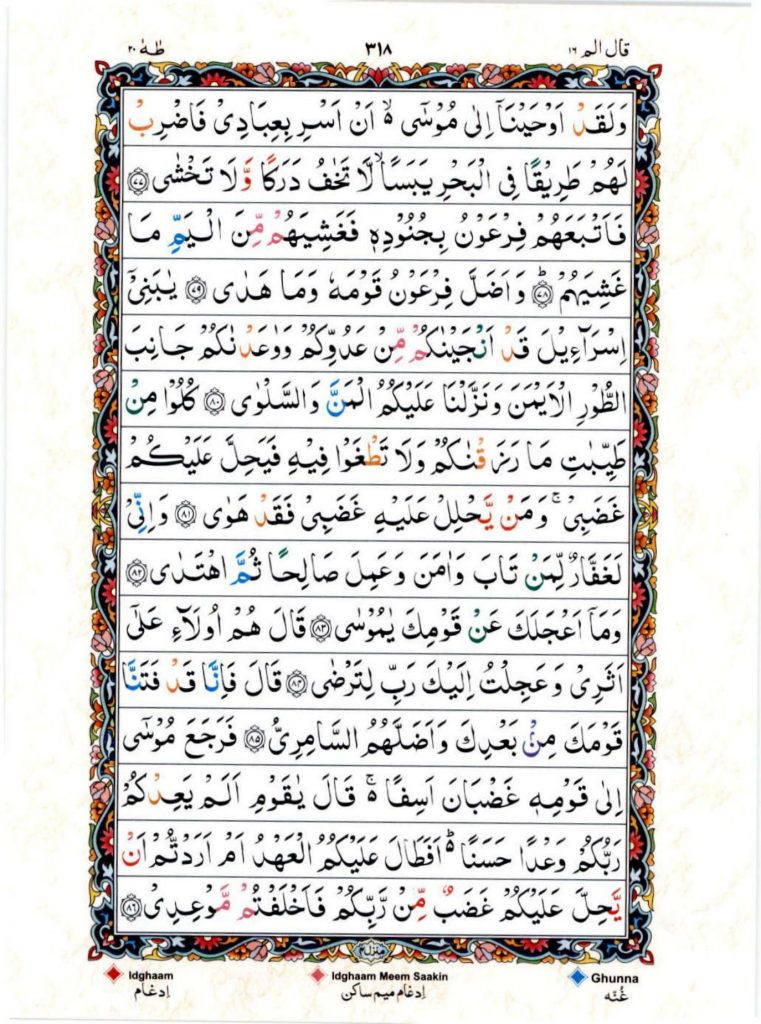 قال الم ١٦ ٣١٨ طٰهٰ ٢٠
وَلَقَدْ اَوْحَيْنَاۤ اِلٰى مُوْسٰٓى ۙ۬ اَنْ اَسْرِ بِعِبَادِىْ فَاضْرِبْ
لَهُمْ طَرِيْقًا فِى الْبَحْرِ يَبَسًا ۙ لَّا تَخٰفُ دَرَكًا وَّلَا تَخْشٰى ﴿۷۷﴾
فَاَتْبَعَهُمْ فِرْعَوْنُ بِجُنُوْدِهٖ فَغَشِيَهُمْ مِّنَ الْيَمِّ مَا
غَشِيَهُمْ ؕ ﴿۷۸﴾ وَاَضَلَّ فِرْعَوْنُ قَوْمَهٗ وَمَا هَدٰى ﴿۷۹﴾ يٰبَنِىْۤ
اِسْرَآءِيْلَ قَدْ اَنْجَيْنٰكُمْ مِّنْ عَدُوِّكُمْ وَوٰعَدْنٰكُمْ جَانِبَ
الطُّوْرِ الْاَيْمَنَ وَنَزَّلْنَا عَلَيْكُمُ الْمَنَّ وَالسَّلْوٰى ﴿۸۰﴾ كُلُوْا مِنْ
طَيِّبٰتِ مَا رَزَقْنٰكُمْ وَلَا تَطْغَوْا فِيْهِ فَيَحِلَّ عَلَيْكُمْ
غَضَبِىْ ۚ وَمَنْ يَّحْلِلْ عَلَيْهِ غَضَبِىْ فَقَدْ هَوٰى ﴿۸۱﴾ وَاِنِّىْ
لَغَفَّارٌ لِّمَنْ تَابَ وَاٰمَنَ وَعَمِلَ صَالِحًا ثُمَّ اهْتَدٰى ﴿۸۲﴾
وَمَاۤ اَعْجَلَكَ عَنْ قَوْمِكَ يٰمُوْسٰى ﴿۸۳﴾ قَالَ هُمْ اُولَآءِ عَلٰٓى
اَثَرِىْ وَعَجِلْتُ اِلَيْكَ رَبِّ لِتَرْضٰى ﴿۸۴﴾ قَالَ فَاِنَّا قَدْ فَتَنَّا
قَوْمَكَ مِنْۢ بَعْدِكَ وَاَضَلَّهُمُ السَّامِرِىُّ ﴿۸۵﴾ فَرَجَعَ مُوْسٰٓى
اِلٰى قَوْمِهٖ غَضْبَانَ اَسِفًا ۬ۚ قَالَ يٰقَوْمِ اَلَمْ يَعِدْكُمْ
رَبُّكُمْ وَعْدًا حَسَنًا ۬ؕ اَفَطَالَ عَلَيْكُمُ الْعَهْدُ اَمْ اَرَدْتُّمْ اَنْ
يَّحِلَّ عَلَيْكُمْ غَضَبٌ مِّنْ رَّبِّكُمْ فَاَخْلَفْتُمْ مَّوْعِدِىْ ﴿۸۶﴾
منزل ٤
Idghaam Idghaam Meem Saakin Ghunna
اِدغَام اِدغَام مِيم سَاكن غُنّه